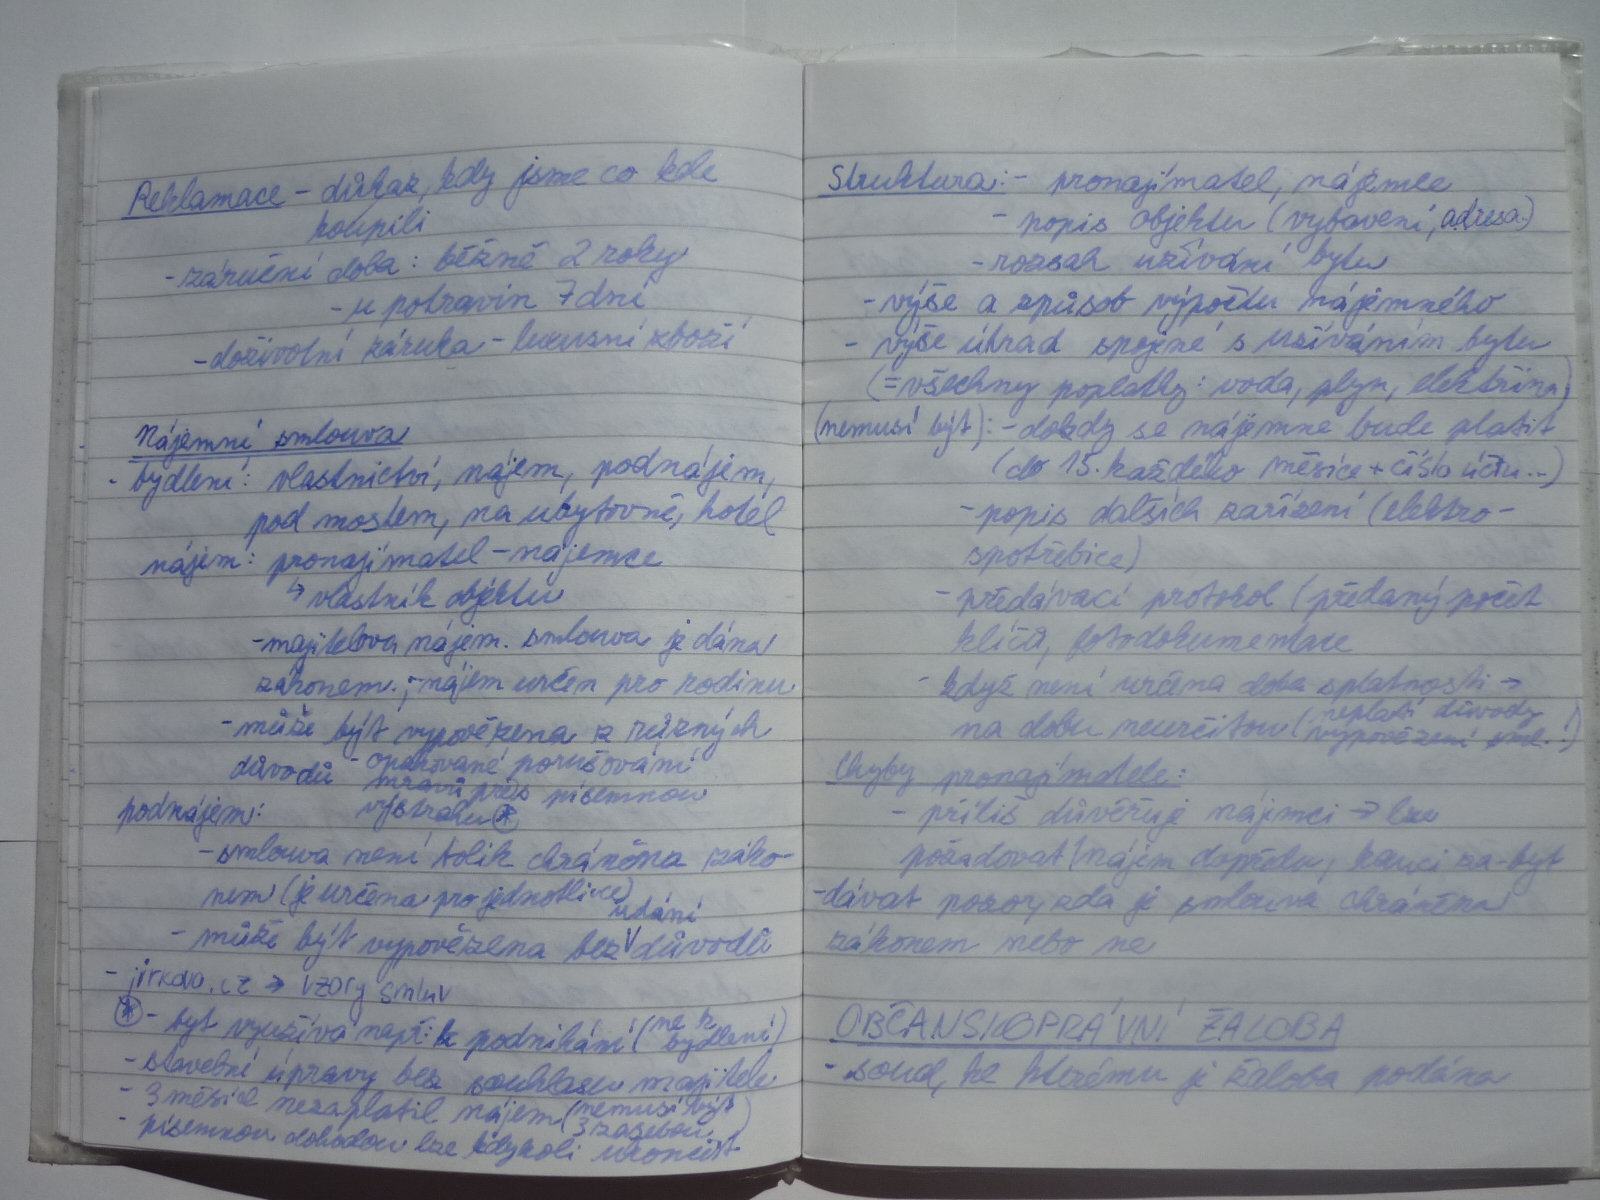 Reklamace - důkaz, kdy jsme co kde
koupili
- záruční doba: běžně 2 roky
- u potravin 7 dní
- doživotní záruka - luxusní zboží
Nájemní smlouva
- bydlení: vlastnictví, nájem, podnájem,
pod mostem, na ubytovně, hotel
nájem: pronajímatel - nájemce
↳ vlastník objektu
- majitelova nájem. smlouva je dána
zákonem, - nájem určen pro rodinu
- může být vypovězena z různých
důvodů - opakované porušování
mravů přes písemnou
výstrahu *
podnájem:
- smlouva není tolik chráněna záko-
nem (je určena pro jednotlivce)
- může být vypovězena bez udání důvodů
- jirkova.cz → vzory smluv
* - byt využívá např. k podnikání (ne k bydlení)
- stavební úpravy bez souhlasu majitele
- 3 měsíce nezaplatil nájem (nemusí být 3 za sebou)
- písemnou dohodou lze kdykoli ukončit
Struktura: - pronajímatel, nájemce
- popis objektu (vybavení, adresa..)
- rozsah užívání bytu
- výše a způsob výpočtu nájemného
- výše úhrad spojené s užíváním bytu
(= všechny poplatky: voda, plyn, elektřina)
(nemusí být): - dokdy se nájemné bude platit
(do 15. každého měsíce + číslo účtu...)
- popis dalších zařízení (elektro-
spotřebiče)
- předávací protokol (předaný počet
klíčů, fotodokumentace
- když není určena doba splatnosti →
na dobu neurčitou (neplatí důvody
vypovězení sml. !)
Chyby pronajímatele:
- příliš důvěřuje nájemci → lze
požadovat nájem dopředu, kauci za byt
- dávat pozor, zda je smlouva chráněna
zákonem nebo ne
OBČANSKOPRÁVNÍ ŽALOBA
- soud, ke kterému je žaloba podána